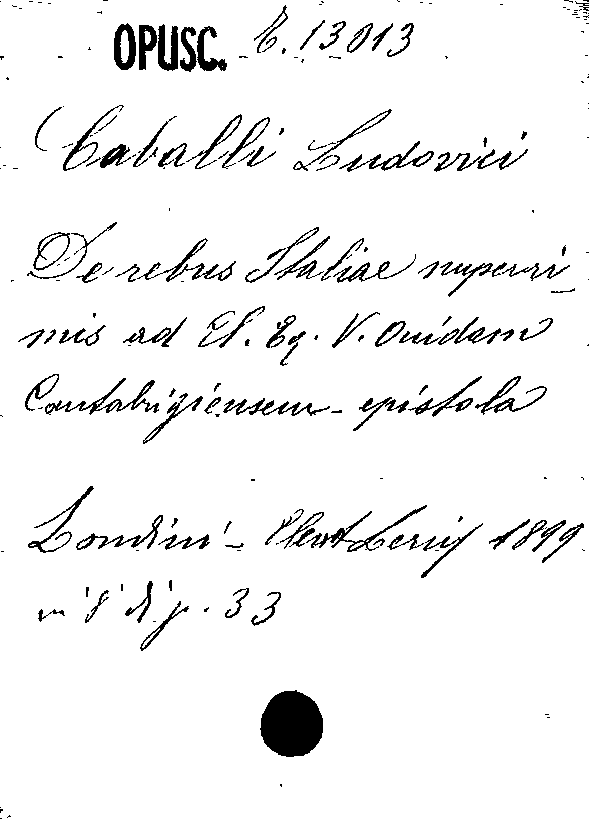 OPUSC. E. 13013
Caballi Ludovici
De rebus Italiae nuperri
mis ad El. Eq. V. Ouidam
Cantabrigiensem - epistola
Londini - 1899
in 8° di p. 33